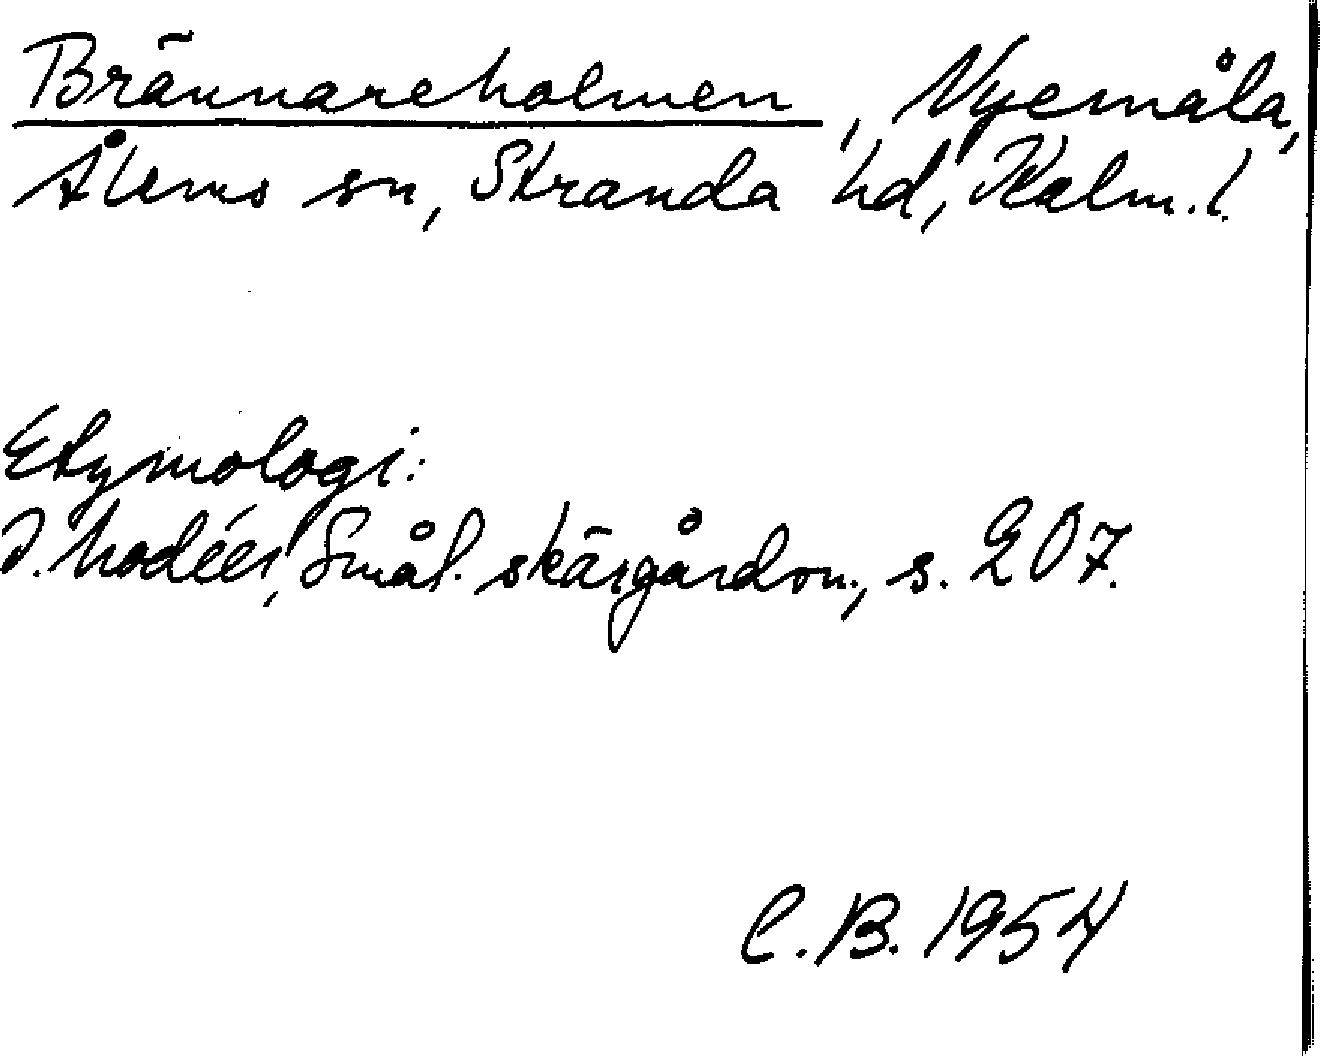 Brännareholmen, Nyemåla,
Ålems sn, Stranda hd, Kalm. l.
Etymologi:
I. Modéer, Smål. skärgårdsn., s. 207.
C.B. 1954